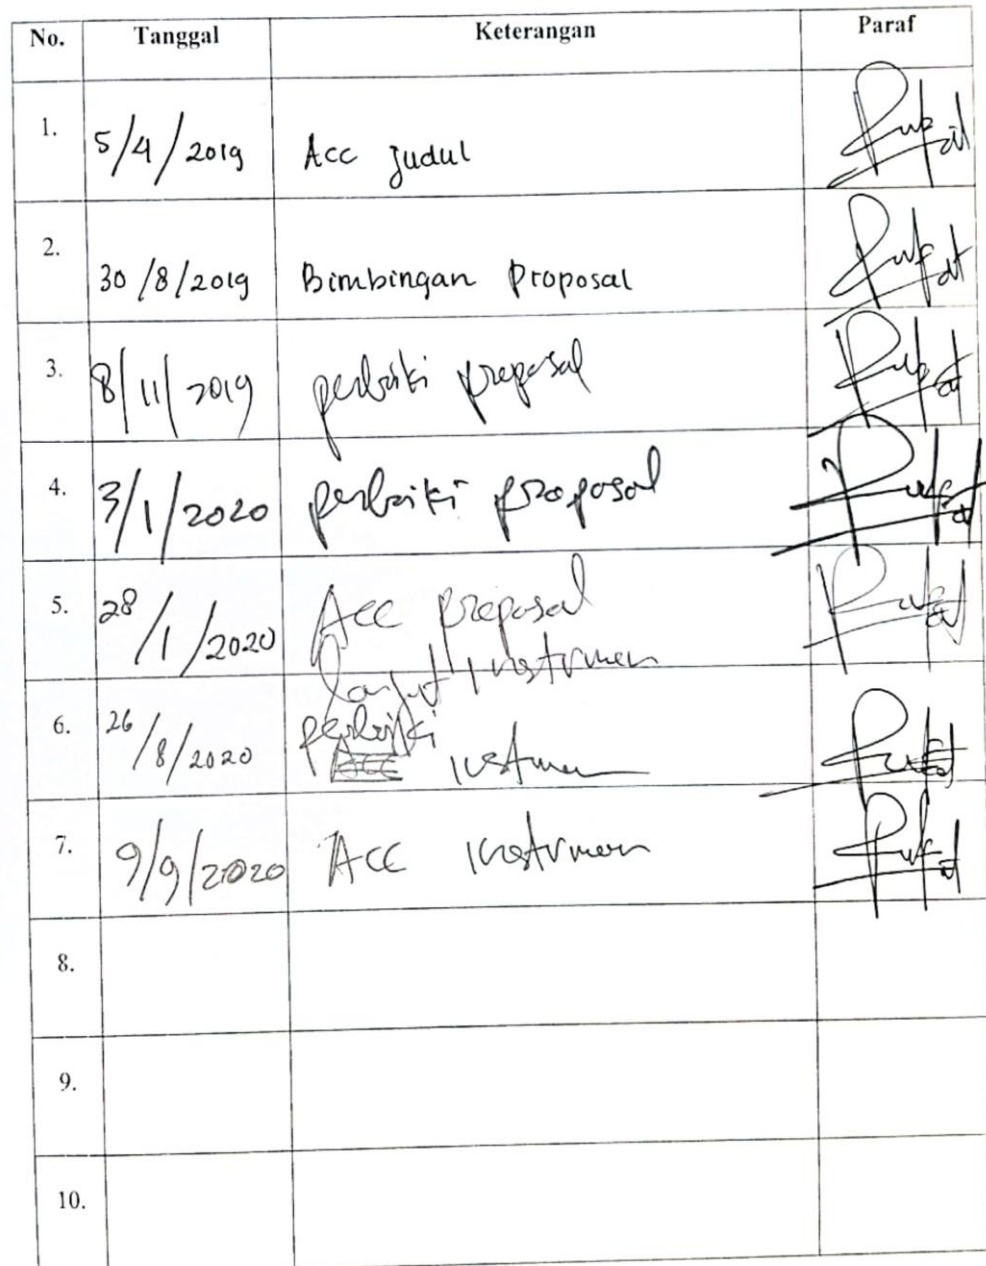 No. Tanggal Keterangan Paraf
1. 5/4/2019 Acc Judul
2. 30/8/2019 Bimbingan Proposal
3. 8/11/2019 perbaiki proposal
4. 3/1/2020 perbaiki proposal
5. 28/1/2020 Acc proposal
lanjut Instrumen
6. 26/8/2020 perbaiki
Acc instrumen
7. 9/9/2020 Acc instrumen
8.
9.
10.